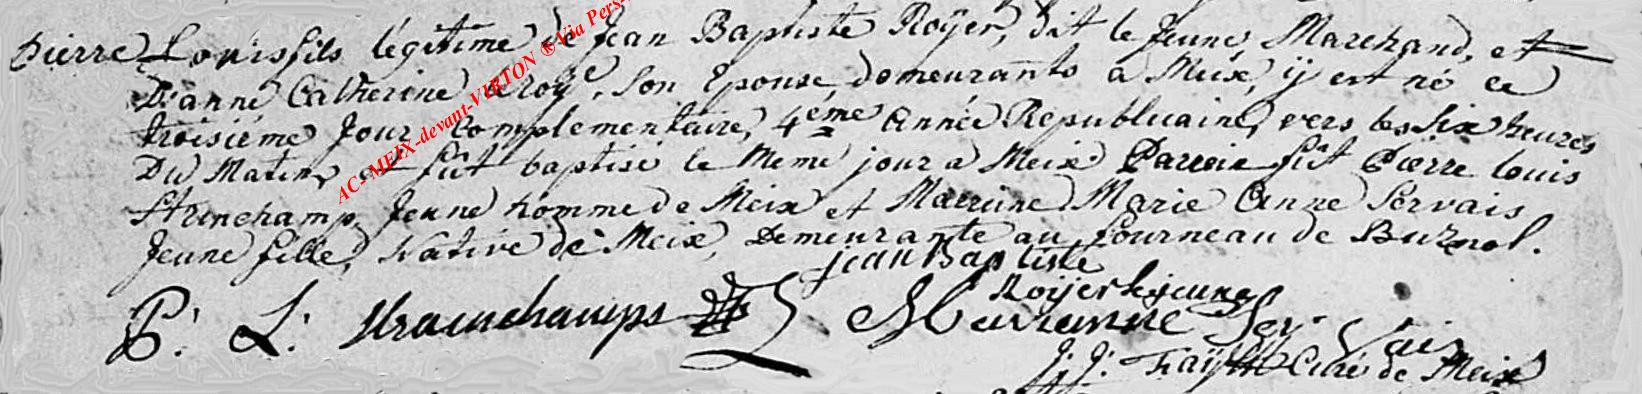 Pierre Louis fils légitime de Jean Baptiste Royer, dit le Jeune, Marchand, et
D'anne Catherine Son Epouse, demeurants a Meix, ÿ est né ce
troisième Jour Complementaire, 4eme année Republicaine, vers les Six heures
Du Matin, et fût baptisé le meme jour a Meix Parein fût Pierre louis
Jeune homme de Meix et Mareine Marie Anne Servais
Jeune fille, Native de Meix, Demeurante au fourneau de
jean Baptiste
Royer le jeune
P. L. Marianne Ser Vais
J. J. Curé de Meix
AC-MEIX-devant-VIRTON ® Via Pers